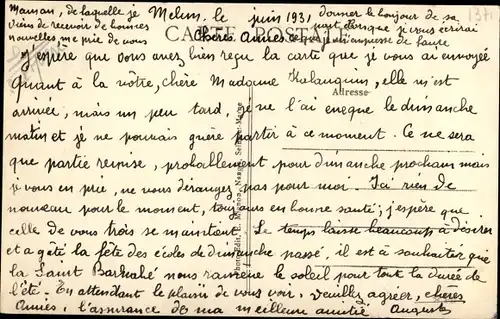 Maman, de laquelle je
viens de recevoir de bonnes
nouvelles me prie de vous
donner le bonjour de sa
part, lorsque je vous écrirai
ce que je m'empresse de faire
Melun, le juin 1931
CARTE POSTALE
Chères Amies
J'espère que vous avez bien reçu la carte que je vous ai envoyée
Quant à la vôtre, chère Madame, elle m'est
Adresse
arrivée, mais un peu tard, je ne l'ai eue que le dimanche
matin et je ne pouvais guère partir à ce moment. Ce ne sera
que partie remise, probablement pour dimanche prochain mais
je vous en prie, ne vous dérangez pas pour moi. Ici rien de
nouveau pour le moment, toujours en bonne santé; j'espère que
celle de vous trois se maintient. Le temps laisse beaucoup à désirer
et a gâté la fête des écoles de dimanche passé, il est à souhaiter que
la Saint Barnabé nous ramène le soleil pour toute la durée de
l'été. En attendant le plaisir de vous voir, veuillez agréer, chères
Amies, l'assurance de ma meilleure amitié Augusta